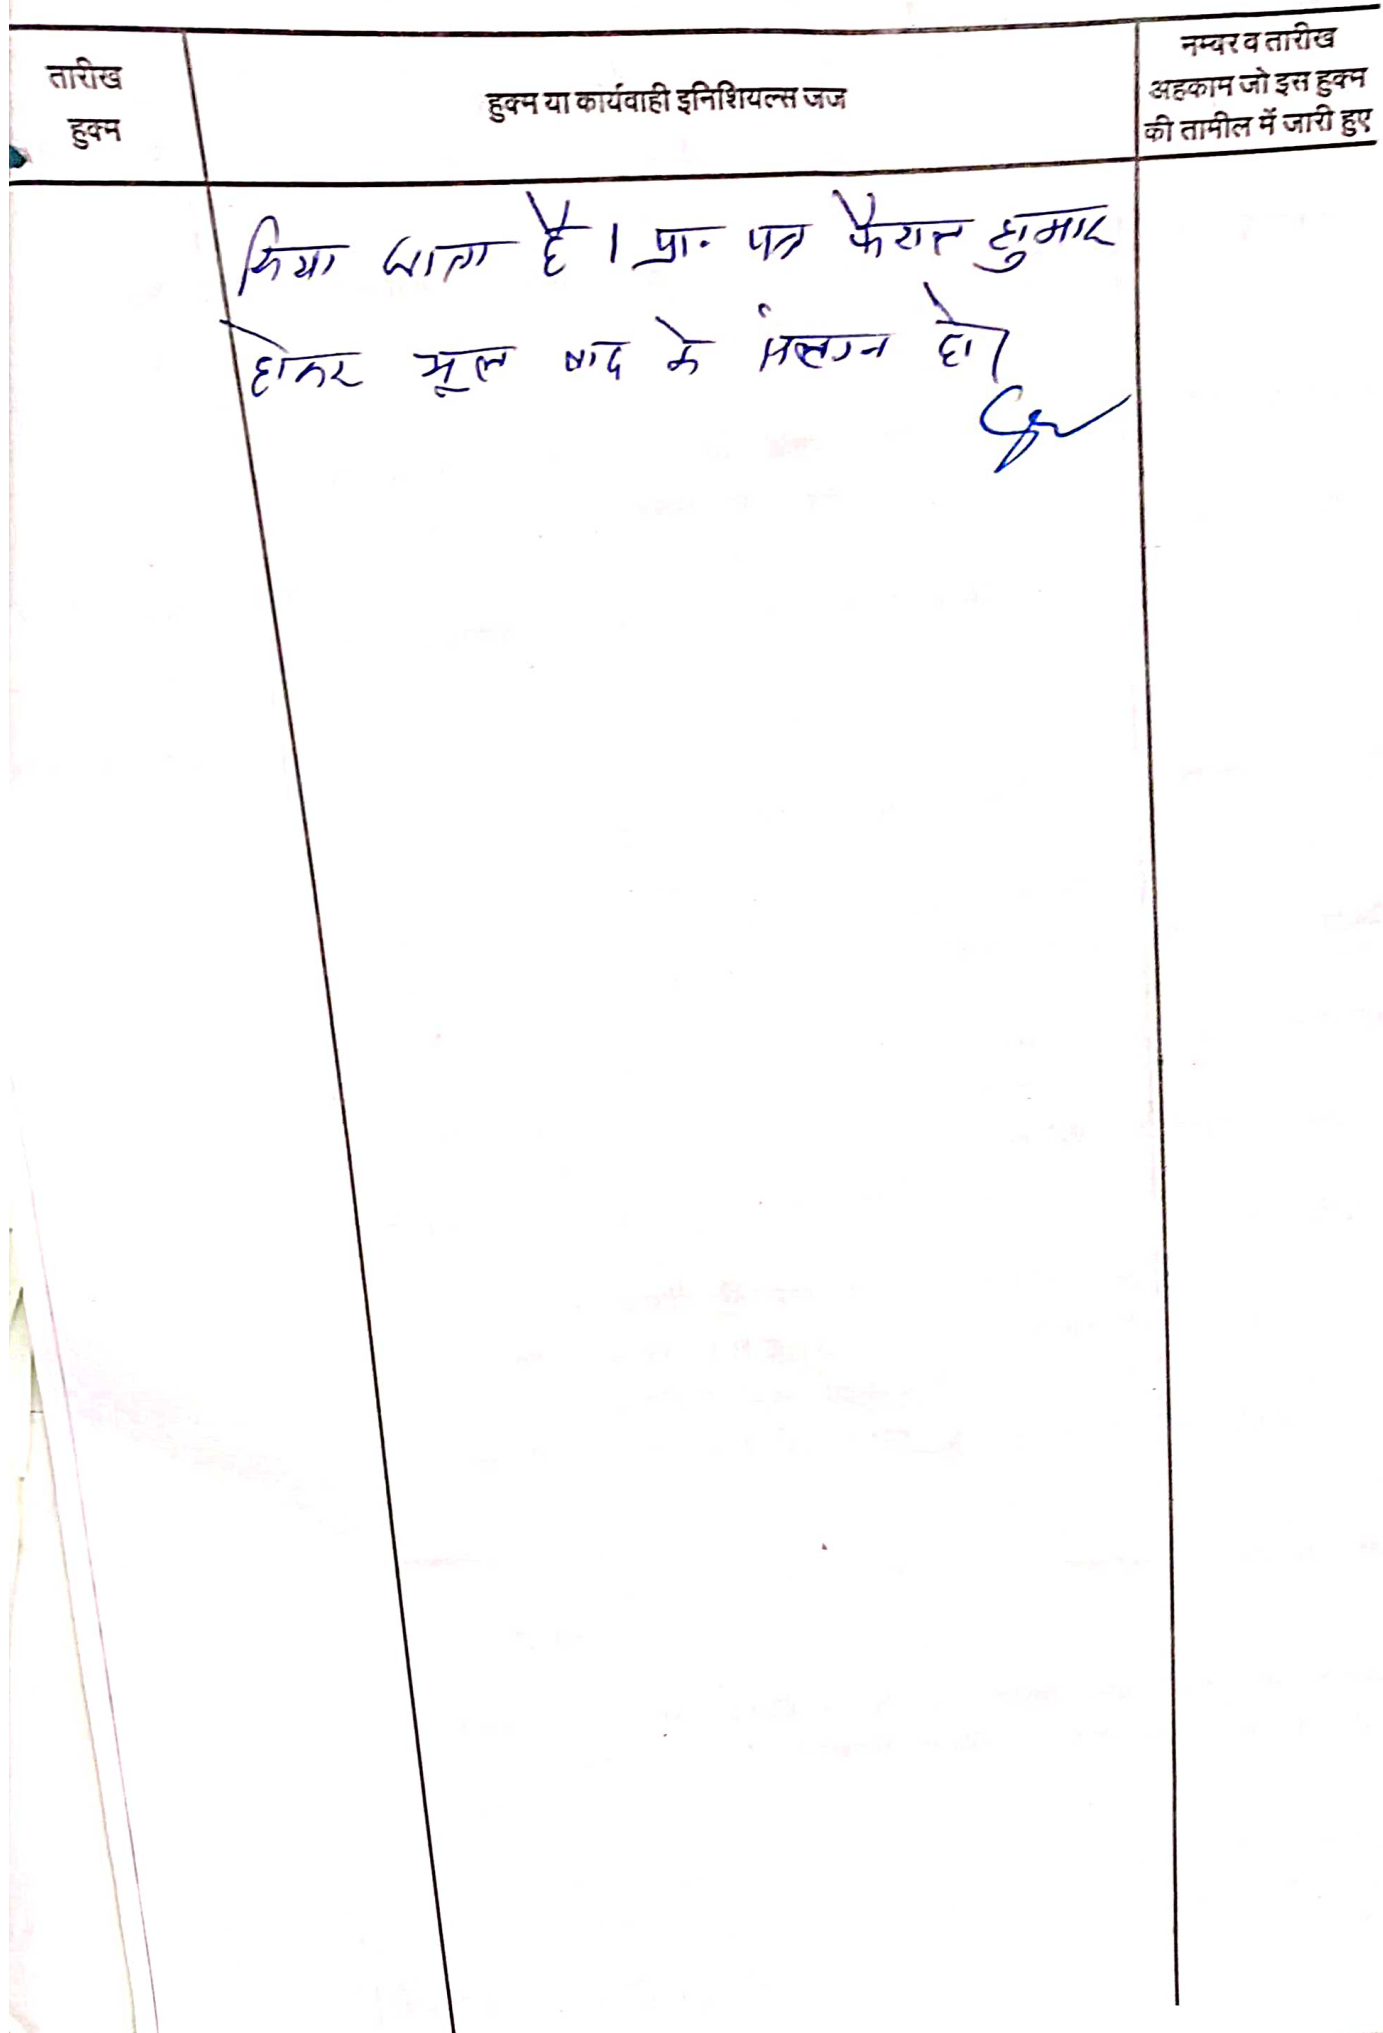 तारीख
हुक्म
हुक्म या कार्यवाही इनिशियल्स जज
नम्बर व तारीख
अहकाम जो इस हुक्म
की तामील में जारी हुए
किया जाता है । प्रा. पत्र फैसल शुमार
होकर मूल वाद के संलग्न हो।